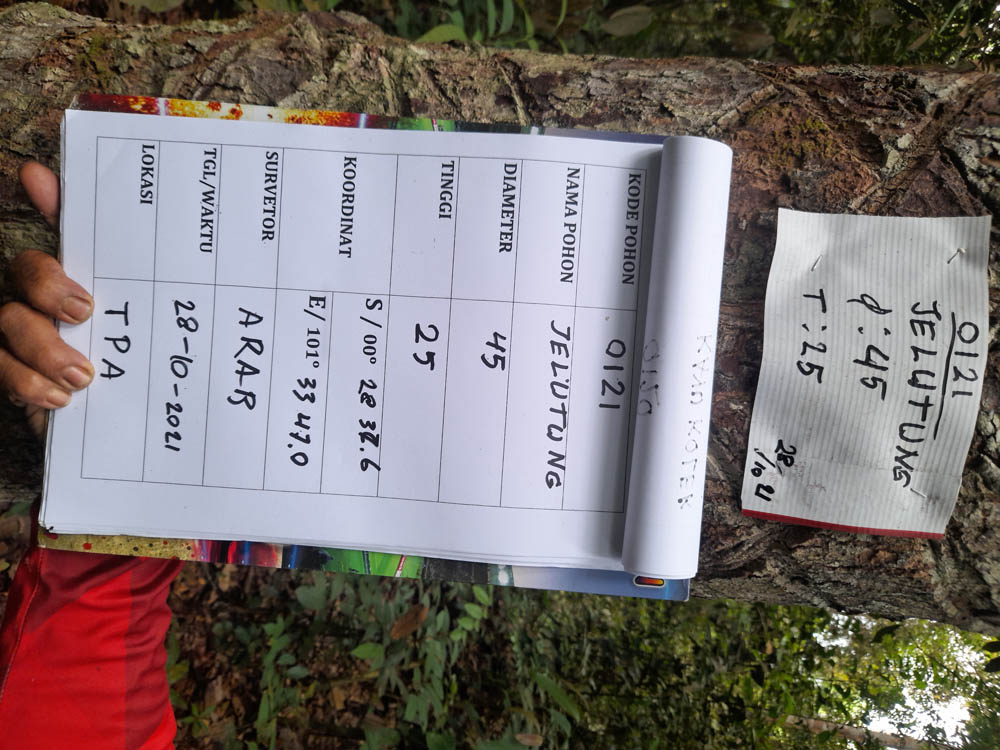 0121
JELUTUNG
φ : 45
T : 25
28/10 21
KAYU KOLEK
0120
KODE POHON 0121
NAMA POHON JELUTUNG
DIAMETER 45
TINGGI 25
KOORDINAT
S / 00° 28 37.6
E/ 101° 33 47.0
SURVETOR ARAB
TGL/WAKTU 28-10-2021
LOKASI TPA